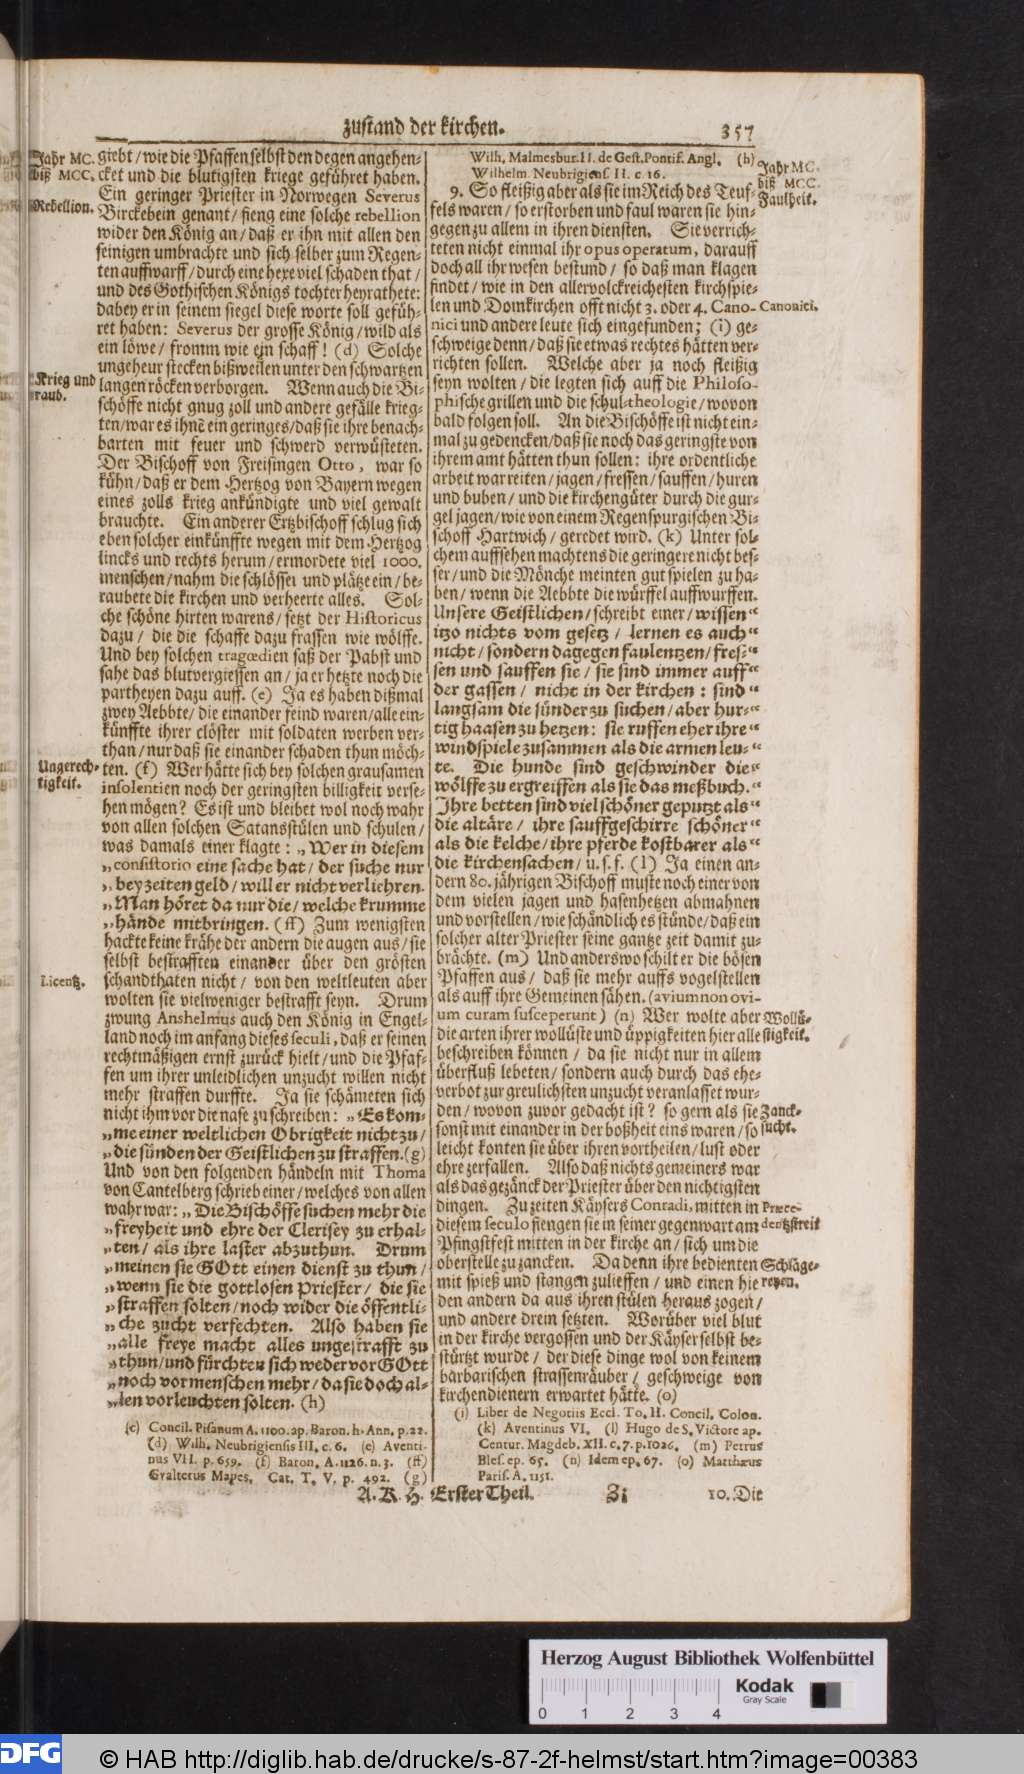 zustand der kirchen.
357
Jahr MC.
biß MCC.
Rebellion.
Krieg und
raub.
Ungerech-
tigkeit.
Licentz.
giebt / wie die Pfaffen selbst den degen angehen-
cket und die blutigsten kriege geführet haben.
Ein geringer Priester in Norwegen Severus
Birckebein genant / fieng eine solche rebellion
wider den König an / daß er ihn mit allen den
seinigen umbrachte und sich selber zum Regen-
ten auffwarff / durch eine hexe viel schaden that /
und des Gothischen Königs tochter heyrathete:
dabey er in seinem siegel diese worte soll gefüh-
ret haben: Severus der grosse König / wild als
ein löwe / fromm wie ein schaff! (d) Solche
ungeheur stecken bißweilen unter den schwartzen
langen röcken verborgen. Wenn auch die Bi-
schöffe nicht gnug zoll und andere gefälle krieg-
ten / war es ihnẽ ein geringes / daß sie ihre benach-
barten mit feuer und schwerd verwüsteten.
Der Bischoff von Freisingen Otto, war so
kühn / daß er dem Hertzog von Bayern wegen
eines zolls krieg ankündigte und viel gewalt
brauchte. Ein anderer Ertzbischoff schlug sich
eben solcher einkünffte wegen mit dem Hertzog
lincks und rechts herum / ermordete viel 1000.
menschen / nahm die schlösser und plätze ein / be-
raubete die kirchen und verheerte alles. Sol-
che schöne hirten warens / setzt der Historicus
dazu / die die schaffe dazu frassen wie wölffe.
Und bey solchen tragœdien saß der Pabst und
sahe das blutvergiessen an / ja er hetzte noch die
partheyen dazu auff. (e) Ja es haben dißmal
zwey Aebbte / die einander feind waren / alle ein-
künffte ihrer clöster mit soldaten werben ver-
than / nur daß sie einander schaden thun möch-
ten. (f) Wer hätte sich bey solchen grausamen
insolentien noch der geringsten billigkeit verse-
hen mögen? Es ist und bleibet wol noch wahr
von allen solchen Satansstülen und schulen /
was damals einer klagte: „Wer in diesem
„consistorio eine sache hat / der suche nur
„bey zeiten geld / will er nicht verliehren.
„Man höret da nur die / welche krumme
„hände mitbringen. (ff) Zum wenigsten
hackte keine krähe der andern die augen aus / sie
selbst bestrafften einander über den grösten
schandthaten nicht / von den weltleuten aber
wolten sie vielweniger bestrafft seyn. Drum
zwung Anshelmus auch den König in Engel-
land noch im anfang dieses seculi, daß er seinen
rechtmäßigen ernst zurück hielt / und die Pfaf-
fen um ihrer unleidlichen unzucht willen nicht
mehr straffen durffte. Ja sie schämeten sich
nicht ihm vor die nase zu schreiben: „Es kom-
„me einer weltlichen Obrigkeit nicht zu /
„die sünden der Geistlichen zu straffen. (g)
Und von den folgenden händeln mit Thoma
von Cantelberg schrieb einer / welches von allen
wahr war: „Die Bischöffe suchen mehr die
„freyheit und ehre der Clerisey zu erhal-
„ten / als ihre laster abzuthun. Drum
„meinen sie GOtt einen dienst zu thun /
„wenn sie die gottlosen Priester / die sie
„straffen solten / noch wider die öffentli-
„che zucht verfechten. Also haben sie
„alle freye macht alles ungestrafft zu
„thun / und fürchten sich weder vor GOtt
„noch vor menschen mehr / da sie doch al-
„len vorleuchten solten. (h)
(c) Concil. Pisanum A. 1100. ap. Baron. h. Ann. p. 22.
(d) Wilh. Neubrigiensis III. c. 6. (e) Aventi-
nus VII. p. 659. (f) Baron. A. 1126. n. 3. (ff)
Gvalterus Mapes, Cat. T. V. p. 492. (g)
Wilh. Malmesbur. II. de Gest. Pontif. Angl. (h)
Wilhelm Neubrigiens II. c. 16.
9. So fleißig aber als sie im Reich des Teuf-
fels waren / so erstorben und faul waren sie hin-
gegen zu allem in ihren diensten. Sie verrich-
teten nicht einmal ihr opus operatum, darauff
doch all ihr wesen bestund / so daß man klagen
findet / wie in den allervolckreichesten kirchspie-
len und Domkirchen offt nicht 3. oder 4. Cano-
nici und andere leute sich eingefunden; (i) ge-
schweige denn / daß sie etwas rechtes hätten ver-
richten sollen. Welche aber ja noch fleißig
seyn wolten / die legten sich auff die Philoso-
phische grillen und die schul-theologie / wovon
bald folgen soll. An die Bischöffe ist nicht ein-
mal zu gedencken / daß sie noch das geringste von
ihrem amt hätten thun sollen: ihre ordentliche
arbeit war reiten / jagen / fressen / sauffen / huren
und buben / und die kirchengüter durch die gur-
gel jagen / wie von einem Regenspurgischen Bi-
schoff Hartwich / geredet wird. (k) Unter sol-
chem auffsehen machtens die geringere nicht bes-
ser / und die Mönche meinten gut spielen zu ha-
ben / wenn die Aebbte die würffel auffwurffen.
Unsere Geistlichen / schreibt einer / wissen“
itzo nichts vom gesetz / lernen es auch“
nicht / sondern dagegen faulentzen / fres-“
sen und sauffen sie / sie sind immer auff“
der gassen / nicht in der kirchen: sind“
langsam die sünder zu suchen / aber hur-“
tig haasen zu hetzen: sie ruffen eher ihre“
windspiele zusammen als die armen leu-“
te. Die hunde sind geschwinder die“
wölffe zu ergreiffen als sie das meßbuch.“
Ihre betten sind viel schöner geputzt als“
die altäre / ihre sauffgeschirre schöner“
als die kelche / ihre pferde kostbarer als“
die kirchensachen / u. s. f. (l) Ja einen an-
dern 80. jährigen Bischoff muste noch einer von
dem vielen jagen und hasenhetzen abmahnen
und vorstellen / wie schändlich es stünde / daß ein
solcher alter Priester seine gantze zeit damit zu-
brächte. (m) Und anderswo schilt er die bösen
Pfaffen aus / daß sie mehr auffs vogelstellen
als auff ihre Gemeinen sähen. (avium non ovi-
um curam susceperunt) (n) Wer wolte aber
die arten ihrer wollüste und üppigkeiten hier alle
beschreiben können / da sie nicht nur in allem
überfluß lebeten / sondern auch durch das ehe-
verbot zur greulichsten unzucht veranlasset wur-
den / wovon zuvor gedacht ist? so gern als sie
sonst mit einander in der boßheit eins waren / so
leicht konten sie über ihren vortheilen / lust oder
ehre zerfallen. Also daß nichts gemeiners war
als das gezänck der Priester über den nichtigsten
dingen. Zu zeiten Käysers Conradi, mitten in
diesem seculo fiengen sie in seiner gegenwart am
Pfingstfest mitten in der kirche an / sich um die
oberstelle zu zancken. Da denn ihre bedienten
mit spieß und stangen zulieffen / und einen hie
den andern da aus ihren stülen heraus zogen /
und andere drein setzten. Worüber viel blut
in der kirche vergossen und der Käyser selbst be-
stürtzt wurde / der diese dinge wol von keinem
barbarischen strassenräuber / geschweige von
kirchendienern erwartet hätte. (o)
(i) Liber de Negotiis Eccl. To. H. Concil. Colon.
(k) Aventinus VI. (l) Hugo de S. Victore ap.
Centur. Magdeb. XII. c. 7. p. 1026. (m) Petrus
Bles. ep. 65. (n) Idem ep. 67. (o) Matthæus
Paris. A. 1151.
Jahr MC.
biß MCC.
Faulheit.
Canonici.
Wollü-
stigkeit.
Zanck-
sucht.
Præce-
dentzstreit
Schläge-
reyen.
A. K. H. Erster Theil.
Zz
10. Die
Herzog August Bibliothek Wolfenbüttel
Kodak
Gray Scale
0 1 2 3 4
DFG
© HAB http://diglib.hab.de/drucke/s-87-2f-helmst/start.htm?image=00383